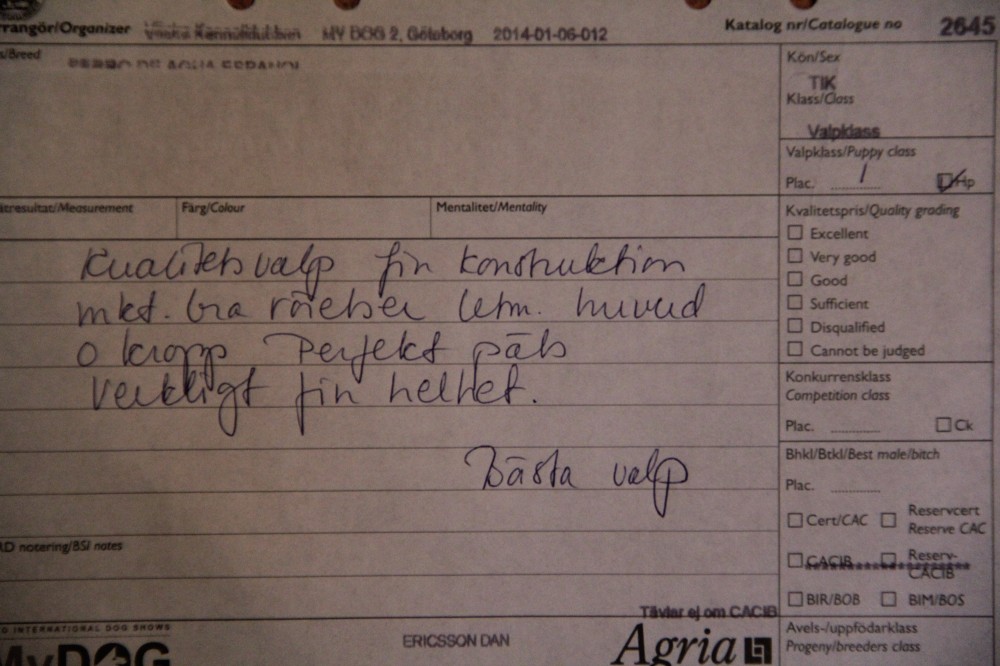 rrangör/Organizer MY DOG 2, Göteborg 2014-01-06-012 Katalog nr/Catalogue no 2645
s/Breed PERRO DE AGUA ESPANOL
Kön/Sex
TIK
Klass/Class
Valpklass
Valpklass/Puppy class
Plac. 1 Hp
ätresultat/Measurement Färg/Colour Mentalitet/Mentality
Kvalitetsvalp fin konstruktion
mkt. bra rörelser utm. huvud
o kropp Perfekt päls
Verkligt fin helhet.
Bästa valp
Kvalitetspris/Quality grading
Excellent
Very good
Good
Sufficient
Disqualified
Cannot be judged
Konkurrensklass
Competition class
Plac. Ck
Bhkl/Btkl/Best male/bitch
Plac.
Cert/CAC Reservcert
Reserve CAC
CACIB Reserv-
CACIB
BIR/BOB BIM/BOS
D notering/BSI notes
Tävlar ej om CACIB
D INTERNATIONAL DOG SHOWS
MyDOG
ERICSSON DAN
Agria
Avels-/uppfödarklass
Progeny/breeders class